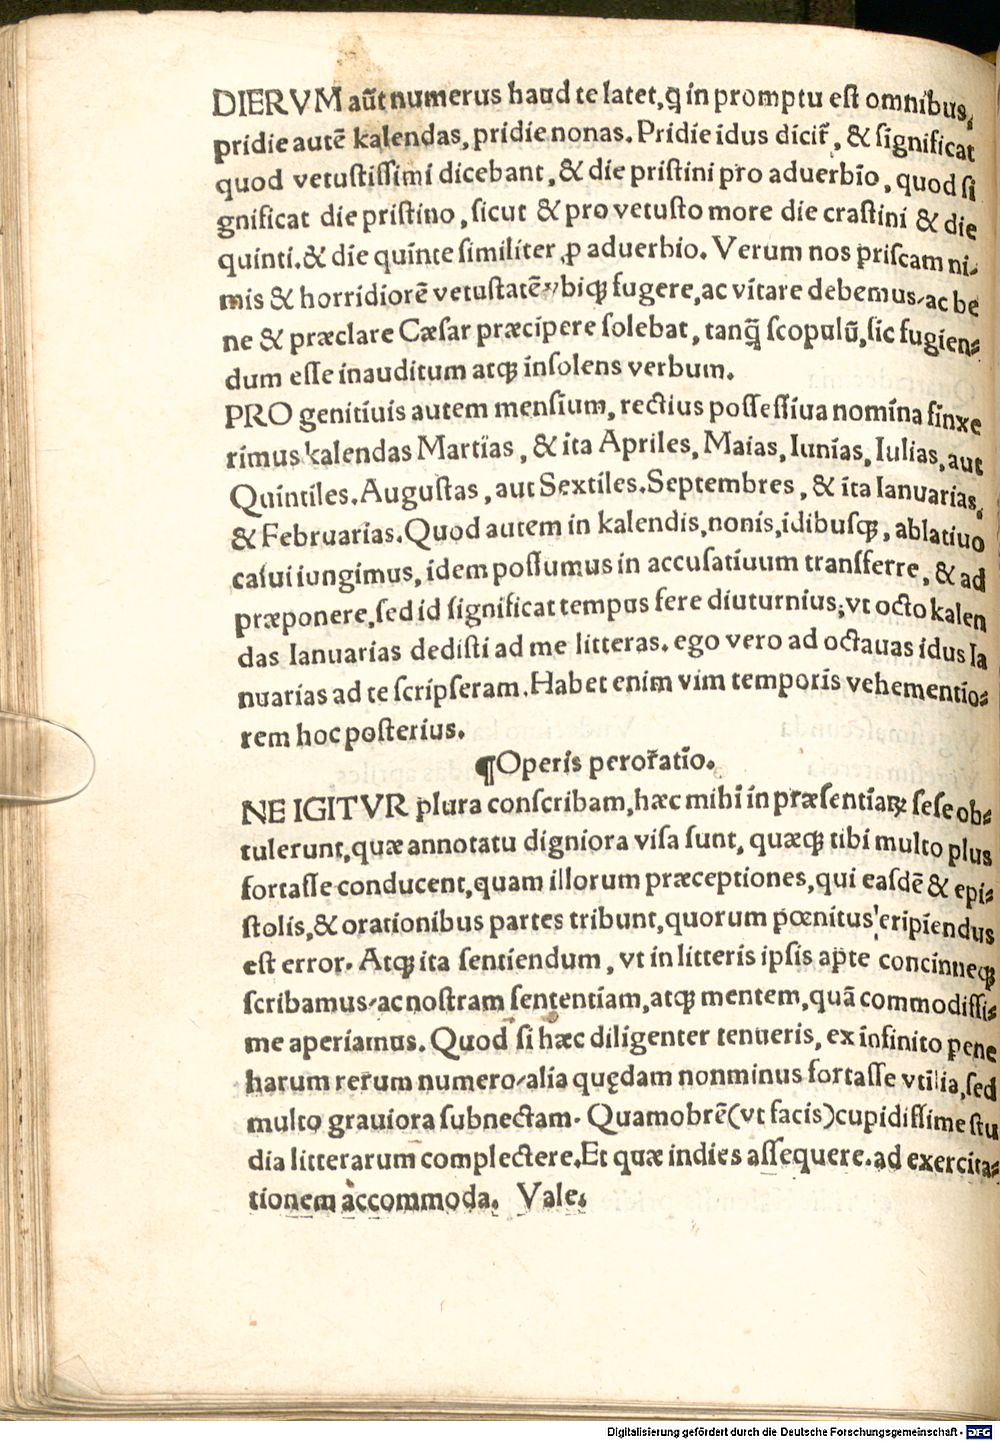 DIERVM aūt numerus haud te latet, ꝙ in promptu eſt omnibus,
pridie autē kalendas, pridie nonas. Pridie idus dicit̄, & ſignificat
quod vetuſtiſſimi dicebant, & die priſtini pro aduerbio, quod ſi
gnificat die priſtino, ſicut & pro vetuſto more die craſtini & die
quinti. & die quinte ſimiliter ꝓ aduerbio. Verum nos priſcam ni⸗
mis & horridiorē vetuſtatē vbiqꝫ fugere, ac vitare debemus/ac be
ne & præclare Cæſar præcipere ſolebat, tanq̄ ſcopulū, ſic fugien⸗
dum eſſe inauditum atqꝫ inſolens verbum.
PRO genitiuis autem menſium, rectius poſſeſſiua nomina finxe
rimus kalendas Martias, & ita Apriles, Maias, Iunias, Iulias, aut
Quintiles. Auguſtas, aut Sextiles. Septembres, & ita Ianuarias,
& Februarias. Quod autem in kalendis, nonis, idibuſqꝫ, ablatiuo
caſui iungimus, idem poſſumus in accuſatiuum tranſferre, & ad
præponere, ſed id ſignificat tempus fere diuturnius, vt octo kalen
das Ianuarias dediſti ad me litteras. ego vero ad octauas idus Ia
nuarias ad te ſcripſeram. Habet enim vim temporis vehementio⸗
rem hoc poſterius.
¶Operis peror̄atio.
NE IGITVR plura conſcribam, hæc mihi in præſentiaꝝ ſeſe ob⸗
tulerunt, quæ annotatu digniora viſa ſunt, quæqꝫ tibi multo plus
fortaſſe conducent, quam illorum præceptiones, qui eaſdē & epi⸗
ſtolis, & orationibus partes tribunt, quorum pœnitus eripiendus
eſt error. Atqꝫ ita ſentiendum, vt in litteris ipſis apte concinneqꝫ
ſcribamus/ac noſtram ſententiam, atqꝫ mentem, quā commodiſſi⸗
me aperiamus. Quod ſi hæc diligenter tenueris, ex infinito pene
harum rerum numero/alia quędam nonminus fortaſſe vtilia, ſed
multo grauiora ſubnectam. Quamobrē (vt facis) cupidiſſime ſtu
dia litterarum complectere. Et quæ indies aſſequere. ad exercita⸗
tionem accommoda. Vale.
Digitalisierung gefördert durch die Deutsche Forschungsgemeinschaft - DFG